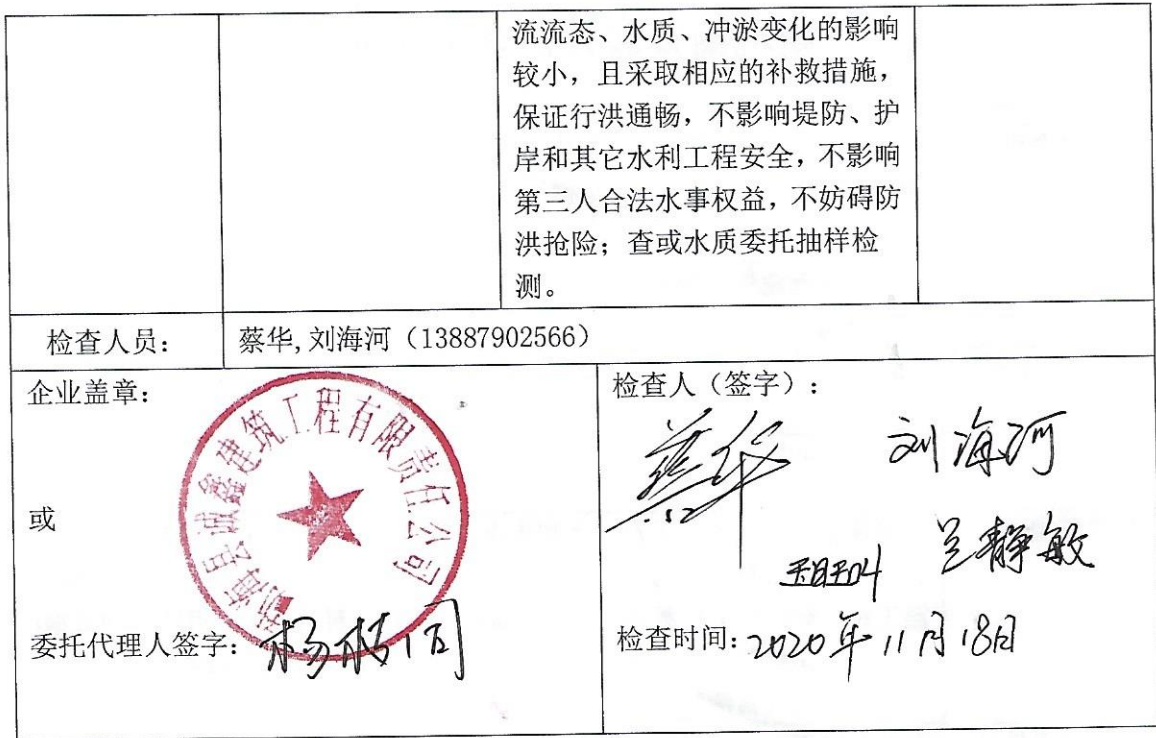 流流态、水质、冲淤变化的影响
较小，且采取相应的补救措施，
保证行洪通畅，不影响堤防、护
岸和其它水利工程安全，不影响
第三人合法水事权益，不妨碍防
洪抢险；查或水质委托抽样检
测。
检查人员：
蔡华,刘海河（13887902566）
企业盖章：
勐海县诚鑫建筑工程有限责任公司
或
委托代理人签字：杨
检查人（签字）：
蔡华 刘海河
静敏
检查时间:2020年11月18日